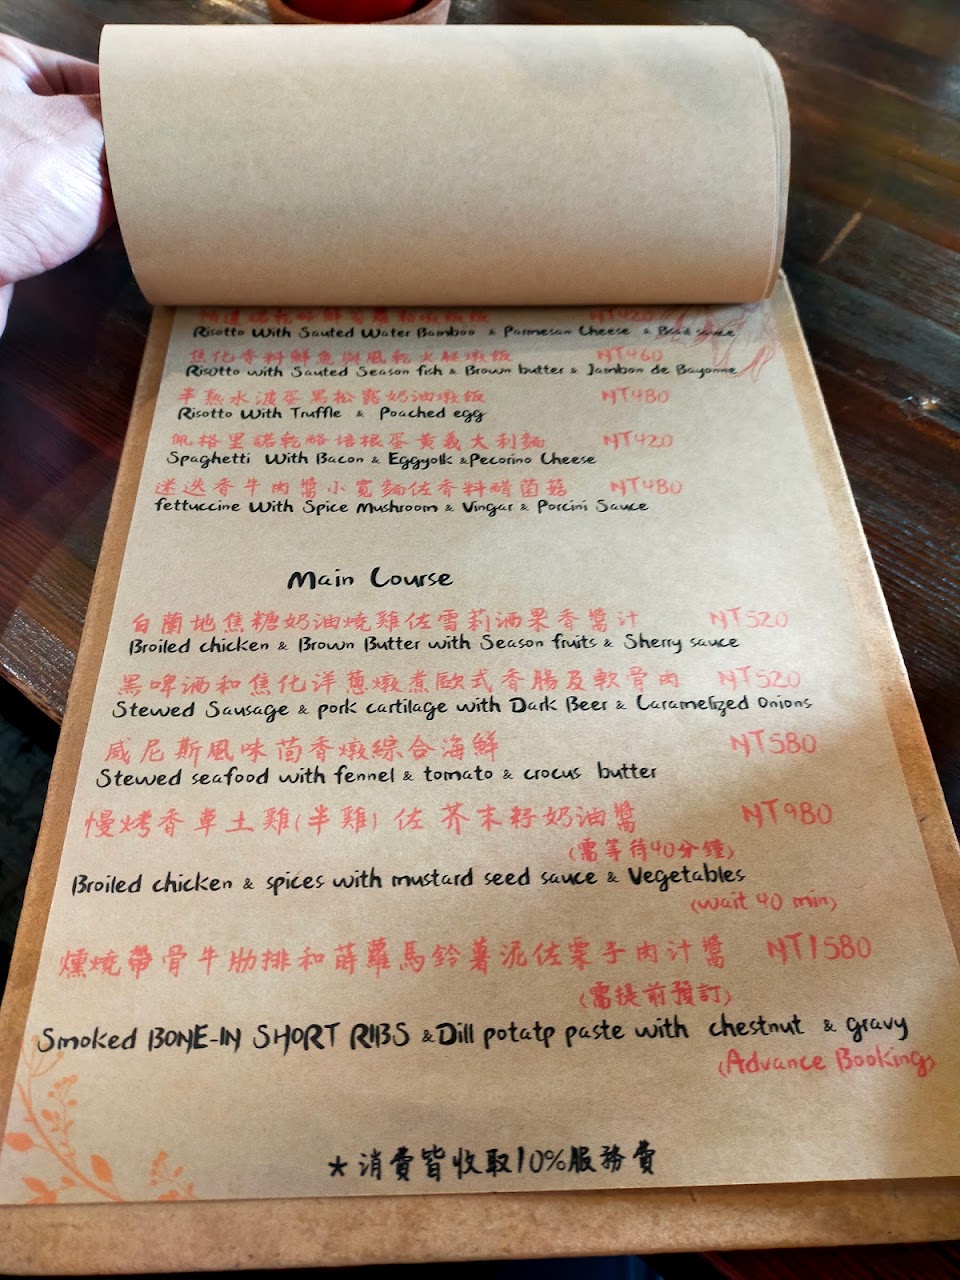 NT420
Risotto With Sauted Water Bamboo & Parmesan Cheese & Basil sauce
焦化香料鮮魚與風乾火腿燉飯 NT460
Risotto with Sauted Season fish & Brown butter & Jambon de Bayonne
半熟水波蛋黑松露奶油燉飯 NT480
Risotto With Truffle & Poached egg
佩格里諾乾酪培根蛋黃義大利麵 NT420
Spaghetti With Bacon & Eggyolk & Pecorino Cheese
迷迭香牛肉醬小寬麵佐香料醋菌菇 NT480
fettuccine With Spice Mushroom & Vingar & Porcini Sauce
Main Course
白蘭地焦糖奶油燒雞佐雪莉酒果香醬汁 NT520
Broiled chicken & Brown Butter with Season fruits & Sherry sauce
黑啤酒和焦化洋蔥燉煮歐式香腸及軟骨肉 NT520
Stewed Sausage & pork cartilage with Dark Beer & Caramelized Onions
威尼斯風味茴香燉綜合海鮮 NT580
Stewed seafood with fennel & tomato & crocus butter
慢烤香草土雞(半雞) 佐 芥末籽奶油醬 NT980
(需等待40分鐘)
Broiled chicken & spices with mustard seed sauce & Vegetables
(wait 40 min)
燻燒帶骨牛肋排和蒔蘿馬鈴薯泥佐栗子肉汁醬 NT1580
(需提前預訂)
Smoked BONE-IN SHORT RIBS & Dill potatp paste with chestnut & gravy
(Advance Booking)
★消費皆收取10%服務費